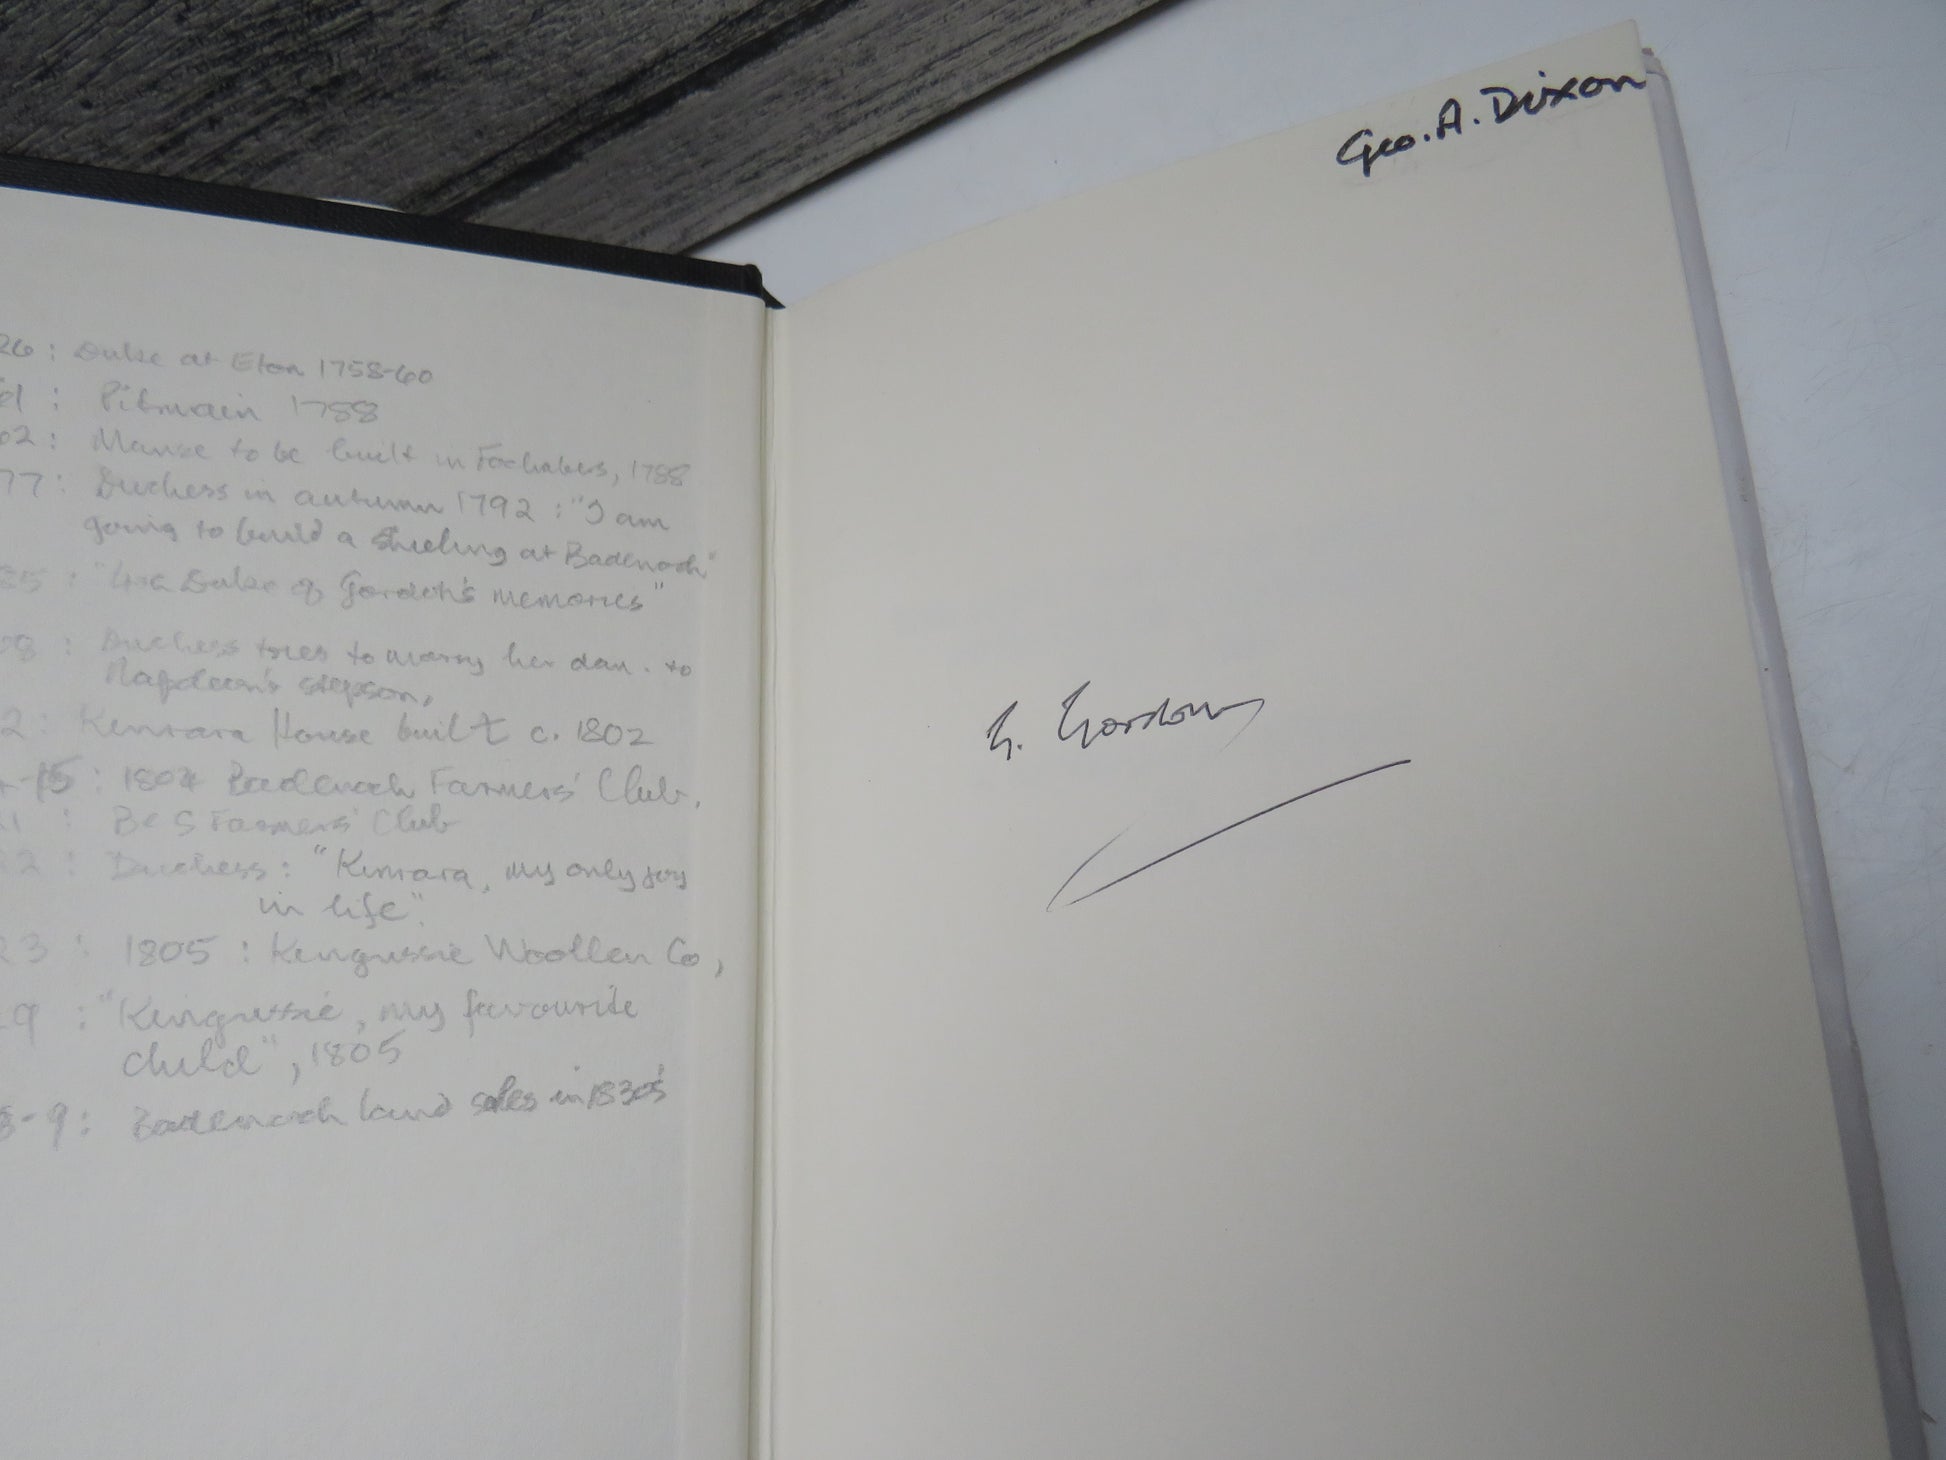 26 : Duke at Eton 1758-60
61 : Pitmain 1788
62 : Manse to be built in Fochabers, 1788
77 : Duchess in autumn 1792 : "I am
going to build a Shieling at Badenoch"
85 : Duke of Gordon's memories"
98 : Duchess tries to marry her dau. to
Napoleon's stepson,
2 : Kinrara House built c. 1802
-15 : 1804 Badenoch Farmers' Club,
1 : B & S Farmers' Club
22 : Duchess : "Kinrara, my only joy
in life".
23 : 1805 : Kingussie Woollen Co,
29 : "Kingussie, my favourite
child", 1805
8-9 : Badenoch land sales in 1830's
Geo. A. Dixon
G. Gordon